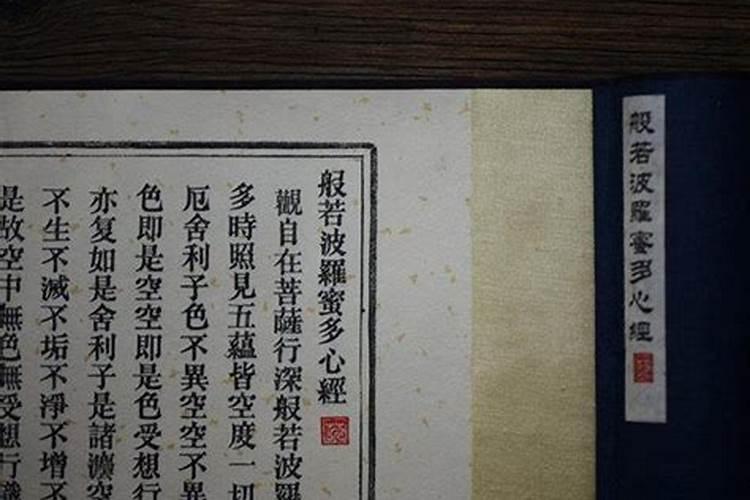 般若波羅蜜多心經
般若波羅蜜多心經
觀自在菩薩行深般若波羅
多時照見五蘊皆空度一切
厄舍利子色不異空空不異
色即是空空即是色受想行
亦复如是舍利子是諸灋空
不生不滅不垢不淨不增不
是故空中無色無受想行識